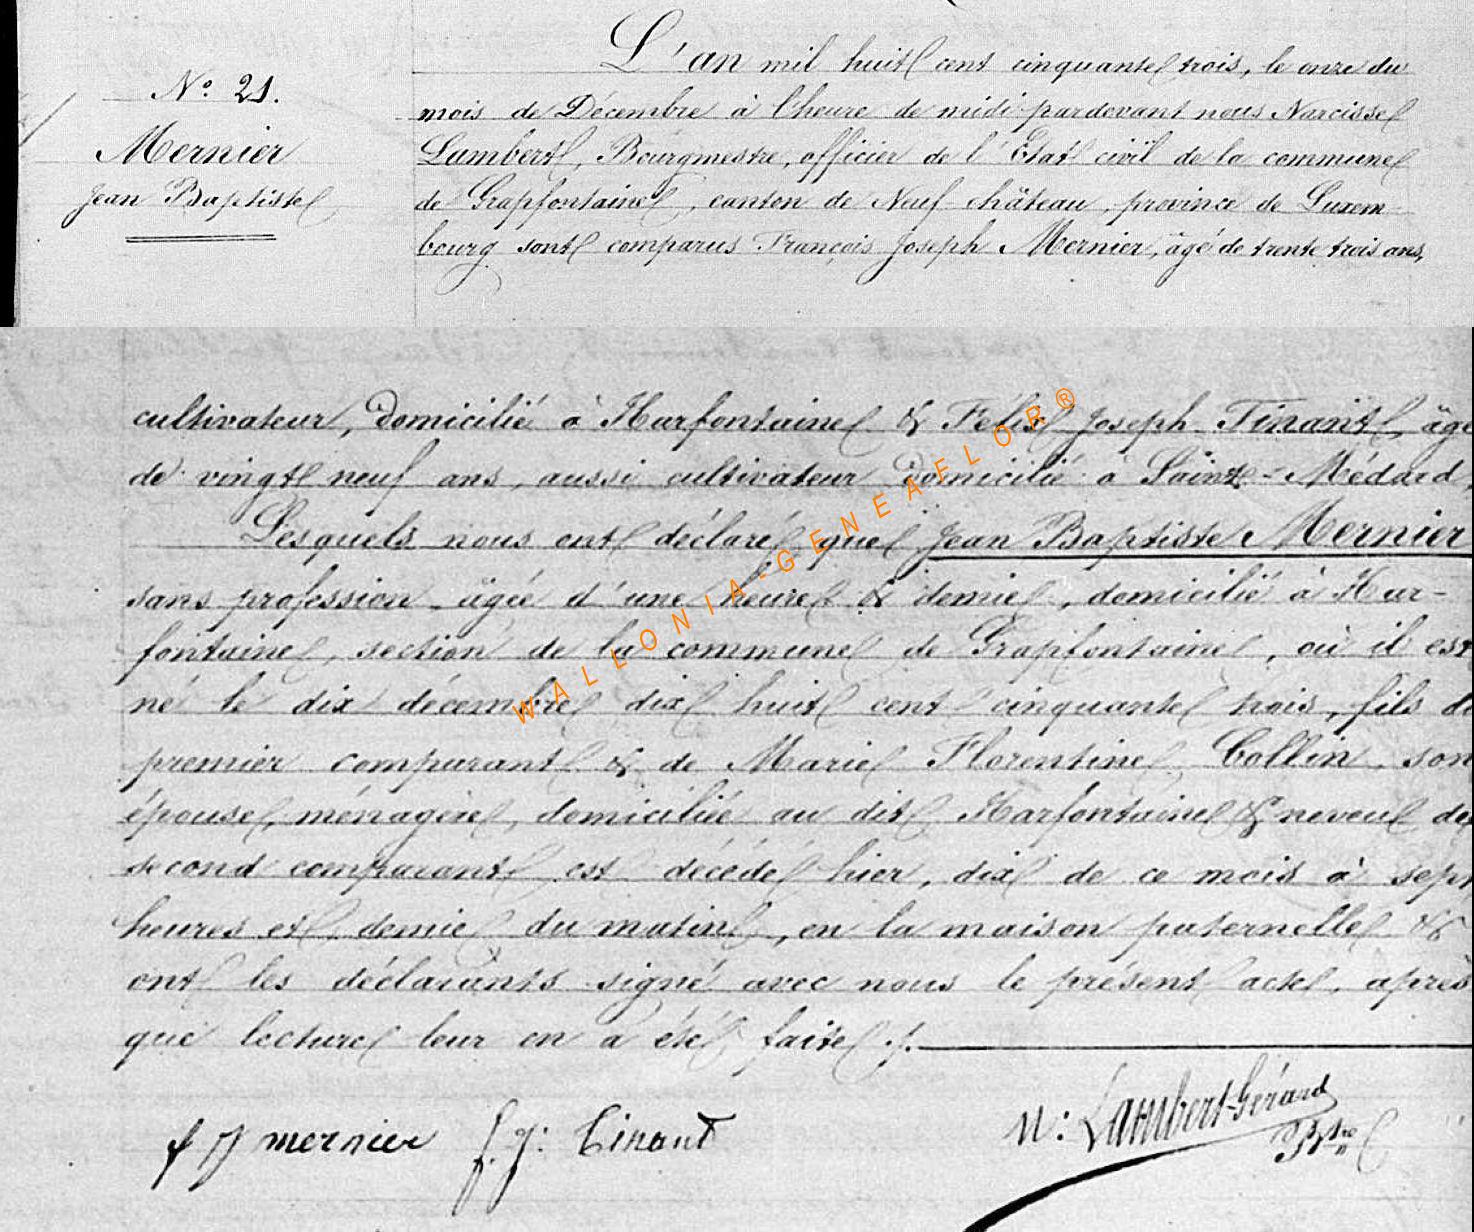 N.º 21.
Mernier
Jean Baptiste
L'an mil huit cent cinquante trois, le onze du
mois de Décembre à l'heure de midi pardevant nous Narcisse
Lambert, Bourgmestre, officier de l'Etat civil de la commune
de Grapfontaine, canton de Neufchâteau, province de Luxem-
bourg sont comparus François Joseph Mernier, âgé de trente trois ans,
cultivateur, domicilié à Harfontaine & Félix Joseph Tinant, âgé
de vingt neuf ans, aussi cultivateur domicilié à Sainte-Médard,
Lesquels nous ont déclaré que Jean Baptiste Mernier
sans profession, âgée d'une heure & demie, domicilié à Har-
fontaine, section de la commune de Grapfontaine, où il est
né le dix décembre dix huit cent cinquante trois, fils du
premier comparant & de Marie Florentine Collin, son
épouse, ménagère, domiciliée au dit Harfontaine & neveu de
second comparant, est décédé hier, dix de ce mois à sept
heures et demie du matin, en la maison paternelle &
ont les déclarants signé avec nous le présent acte, après
que lecture leur en a été faite ./.
f J mernier f. J: Tinant N: Lambert-Gérard
Bstre
WALLONIA-GENEAFLOR®